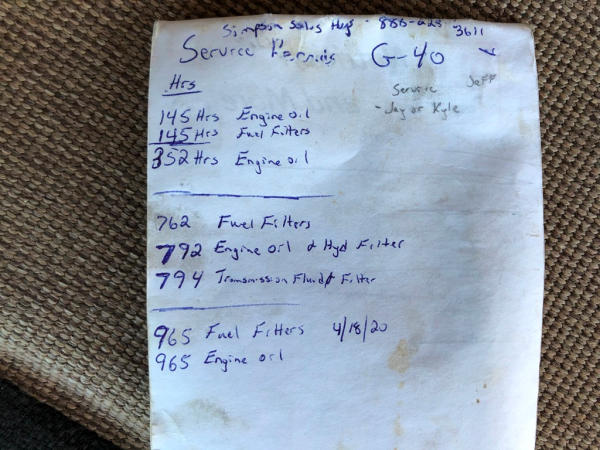 Simpson Sales Hwy - 886-
3611
Service G-40
Hrs
Service Jeff
- Jay or Kyle
145 Hrs Engine oil
145 Hrs Fuel Filters
352 Hrs Engine oil
762 Fuel Filters
792 Engine oil & Hyd Filter
794 Transmission Fluid & Filter
965 Fuel Filters 4/18/20
965 Engine oil